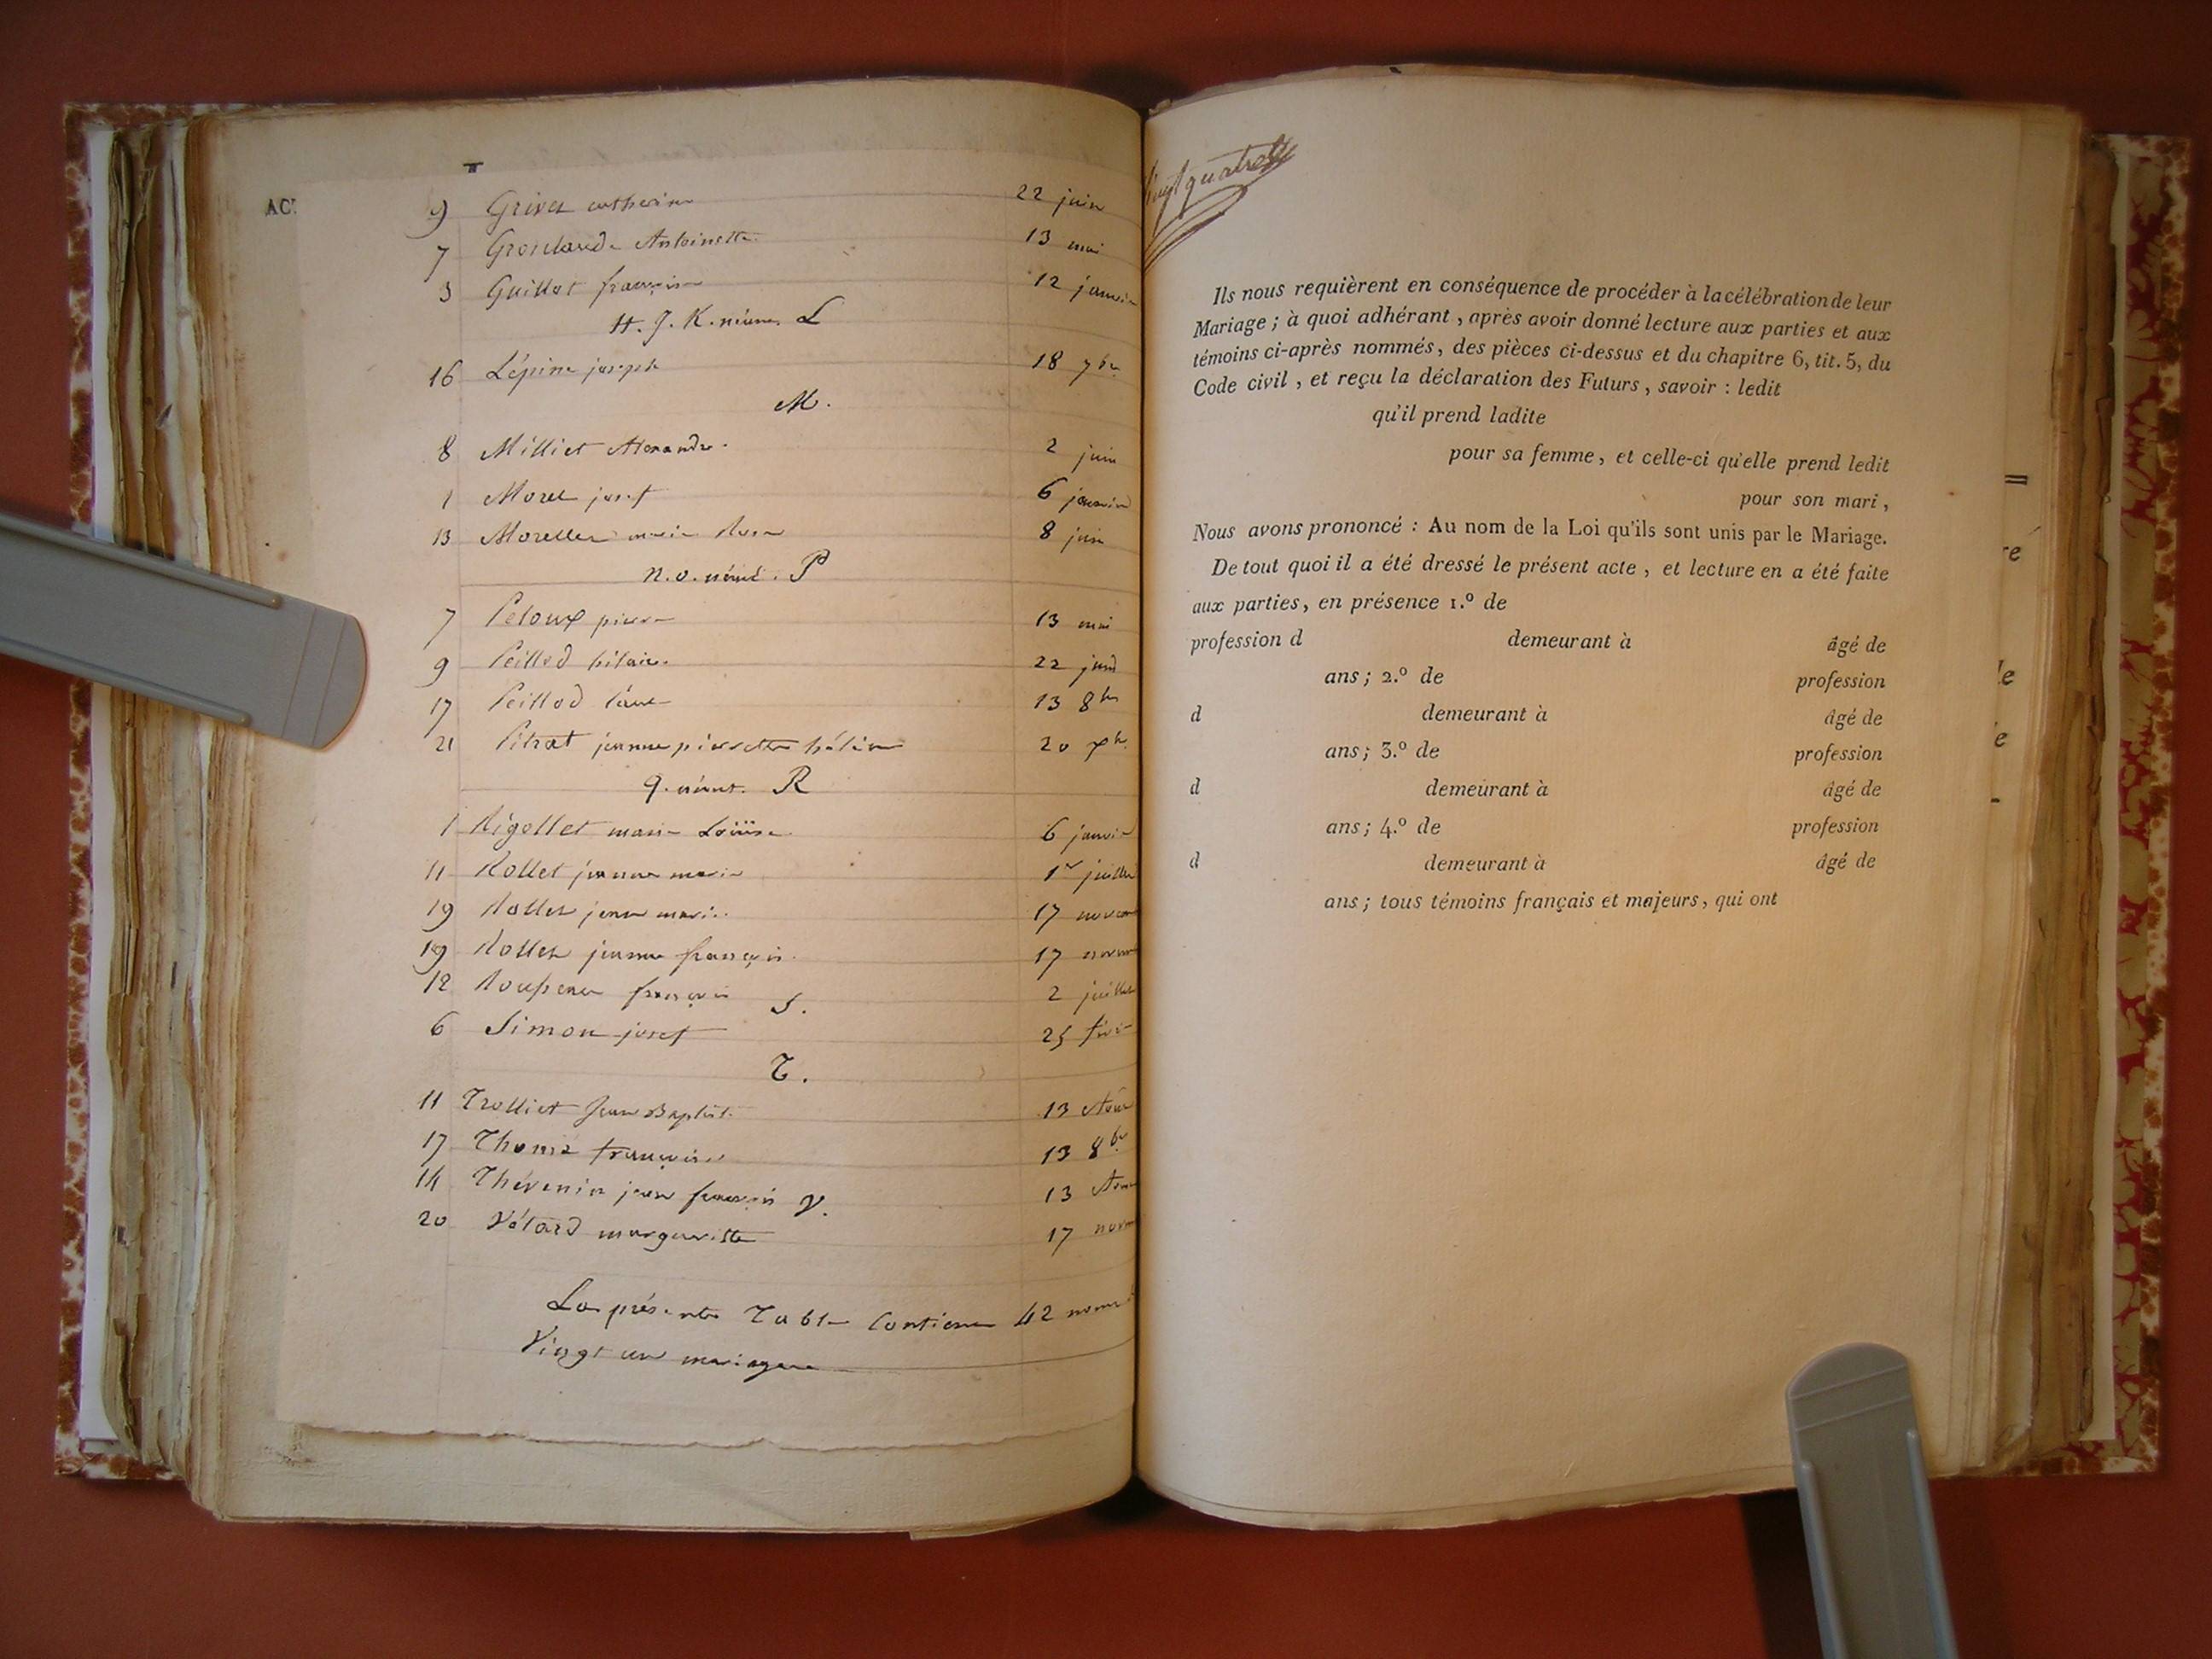 AC
9 Grivet catherine 22 juin
7 Antoinette 13 mai
3 Guillot 12 janvi
H. J. K. néant. L
16 Lépine joseph 18 7bre
M.
8 Milliet Alexandre. 2 juin
1 Morel josef 6 janvier
13 Morellet marie 8 juin
n. o. néant. P
7 Peloux pierre 13 mai
9 Peillod hilaire. 22 juin
17 Peillod 13 8bre
21 Pitrat jeanne pierrette 20 Xbre
q. néant. R
1 Rigollet marie Loüise 6 janvier
11 Rollet jeanne marie 1er juillet
19 Rollet marie 17 novem
19 Rollet jeanne 17 novem
12 2 juillet
S.
6 Simon josef 25
T.
11 Trolliet Jean Baptiste 13
17 Thomé 13 8bre
14 Thévenin jean françois 13
V.
20 Vétard margueritte 17 nov
La présente Table Contient 42 noms
Vingt un mariages
vingt quatre
Ils nous requièrent en conséquence de procéder à la célébration de leur
Mariage ; à quoi adhérant , après avoir donné lecture aux parties et aux
témoins ci-après nommés, des pièces ci-dessus et du chapitre 6, tit. 5, du
Code civil , et reçu la déclaration des Futurs , savoir : ledit
qu'il prend ladite
pour sa femme, et celle-ci qu'elle prend ledit
pour son mari ,
Nous avons prononcé : Au nom de la Loi qu'ils sont unis par le Mariage.
De tout quoi il a été dressé le présent acte , et lecture en a été faite
aux parties, en présence 1.º de
profession d demeurant à âgé de
ans ; 2.º de profession
d demeurant à âgé de
ans ; 3.º de profession
d demeurant à âgé de
ans ; 4.º de profession
d demeurant à âgé de
ans ; tous témoins français et majeurs, qui ont
re
le
e